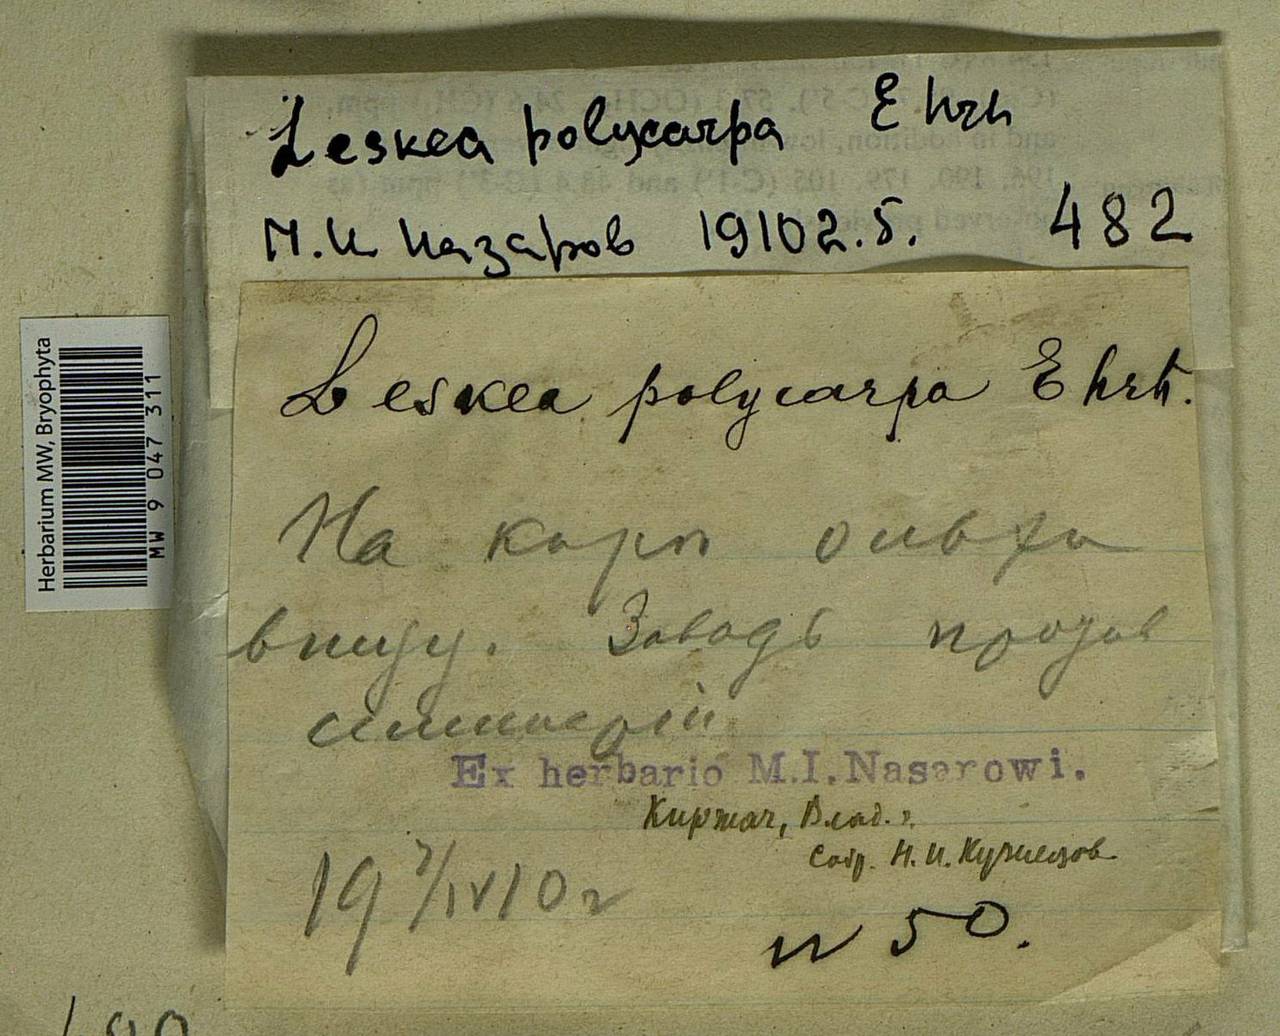 Leskea polycarpa Ehrh
М.И Назаров 19102.5. 482
Leskea polycarpa Ehrh.
На коры ольхи
внизу. Заводь против
семинарій
Ex herbario M.I.Naserowi.
Киржач, Влад. г.
Собр. Н. И. Кузнецов
19 7/IV 10 г
N 50.
Herbarium MW, Bryophyta
MW 9 047 311